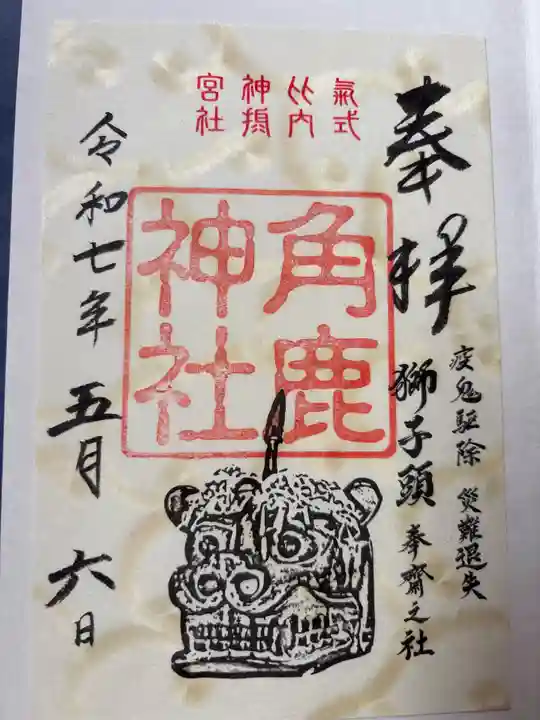 奉拝
疫鬼駆除 災難退失
獅子頭 奉齋之社
氣式
比内
神揚
宮社
角鹿
神社
令和七年 五月 六日